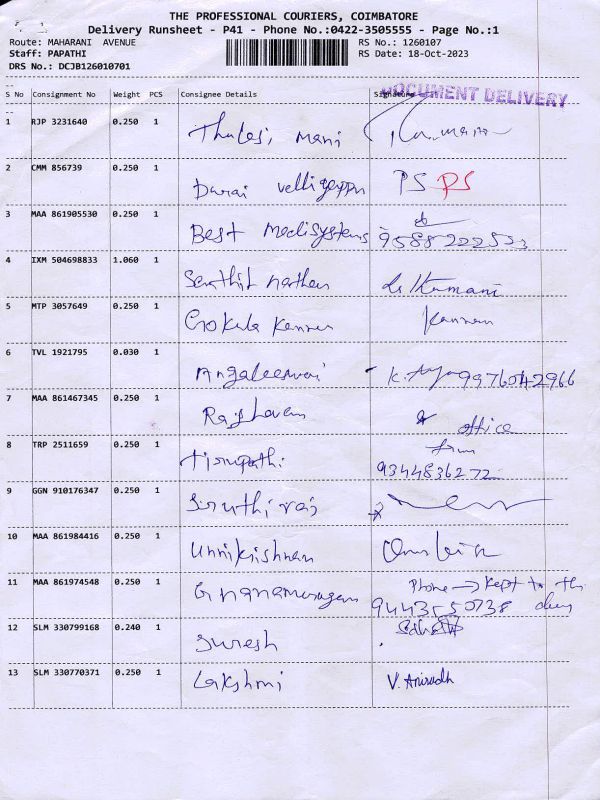 THE PROFESSIONAL COURIERS, COIMBATORE
Delivery Runsheet - P41 - Phone No.:0422-3505555 - Page No.:1
Route: MAHARANI AVENUE RS No.: 1260107
Staff: PAPATHI RS Date: 18-Oct-2023
DRS No.: DCJB126010701
DOCUMENT DELIVERY
S No Consignment No Weight PCS Consignee Details Signature
1 RJP 3231640 0.250 1 Thulasi mani
2 CMM 856739 0.250 1 Durai velligeyppn PS PS
3 MAA 861905530 0.250 1 Best medisystems 9588222533
4 IXM 504698833 1.060 1 Senthil nathan
5 MTP 3057649 0.250 1 Gokula Kannan Kannan
6 TVL 1921795 0.030 1 Angaleeswari 9976042966
7 MAA 861467345 0.250 1 Raghavan office
8 TRP 2511659 0.250 1 tirupathi 9344836272
9 GGN 910176347 0.250 1 Sruthi raj
10 MAA 861984416 0.250 1 Unnikrishnan
11 MAA 861974548 0.250 1 Gnanamurugan Phone → kept to the
9443550738
12 SLM 330799168 0.240 1 Suresh
13 SLM 330770371 0.250 1 Lakshmi V. Anirudh